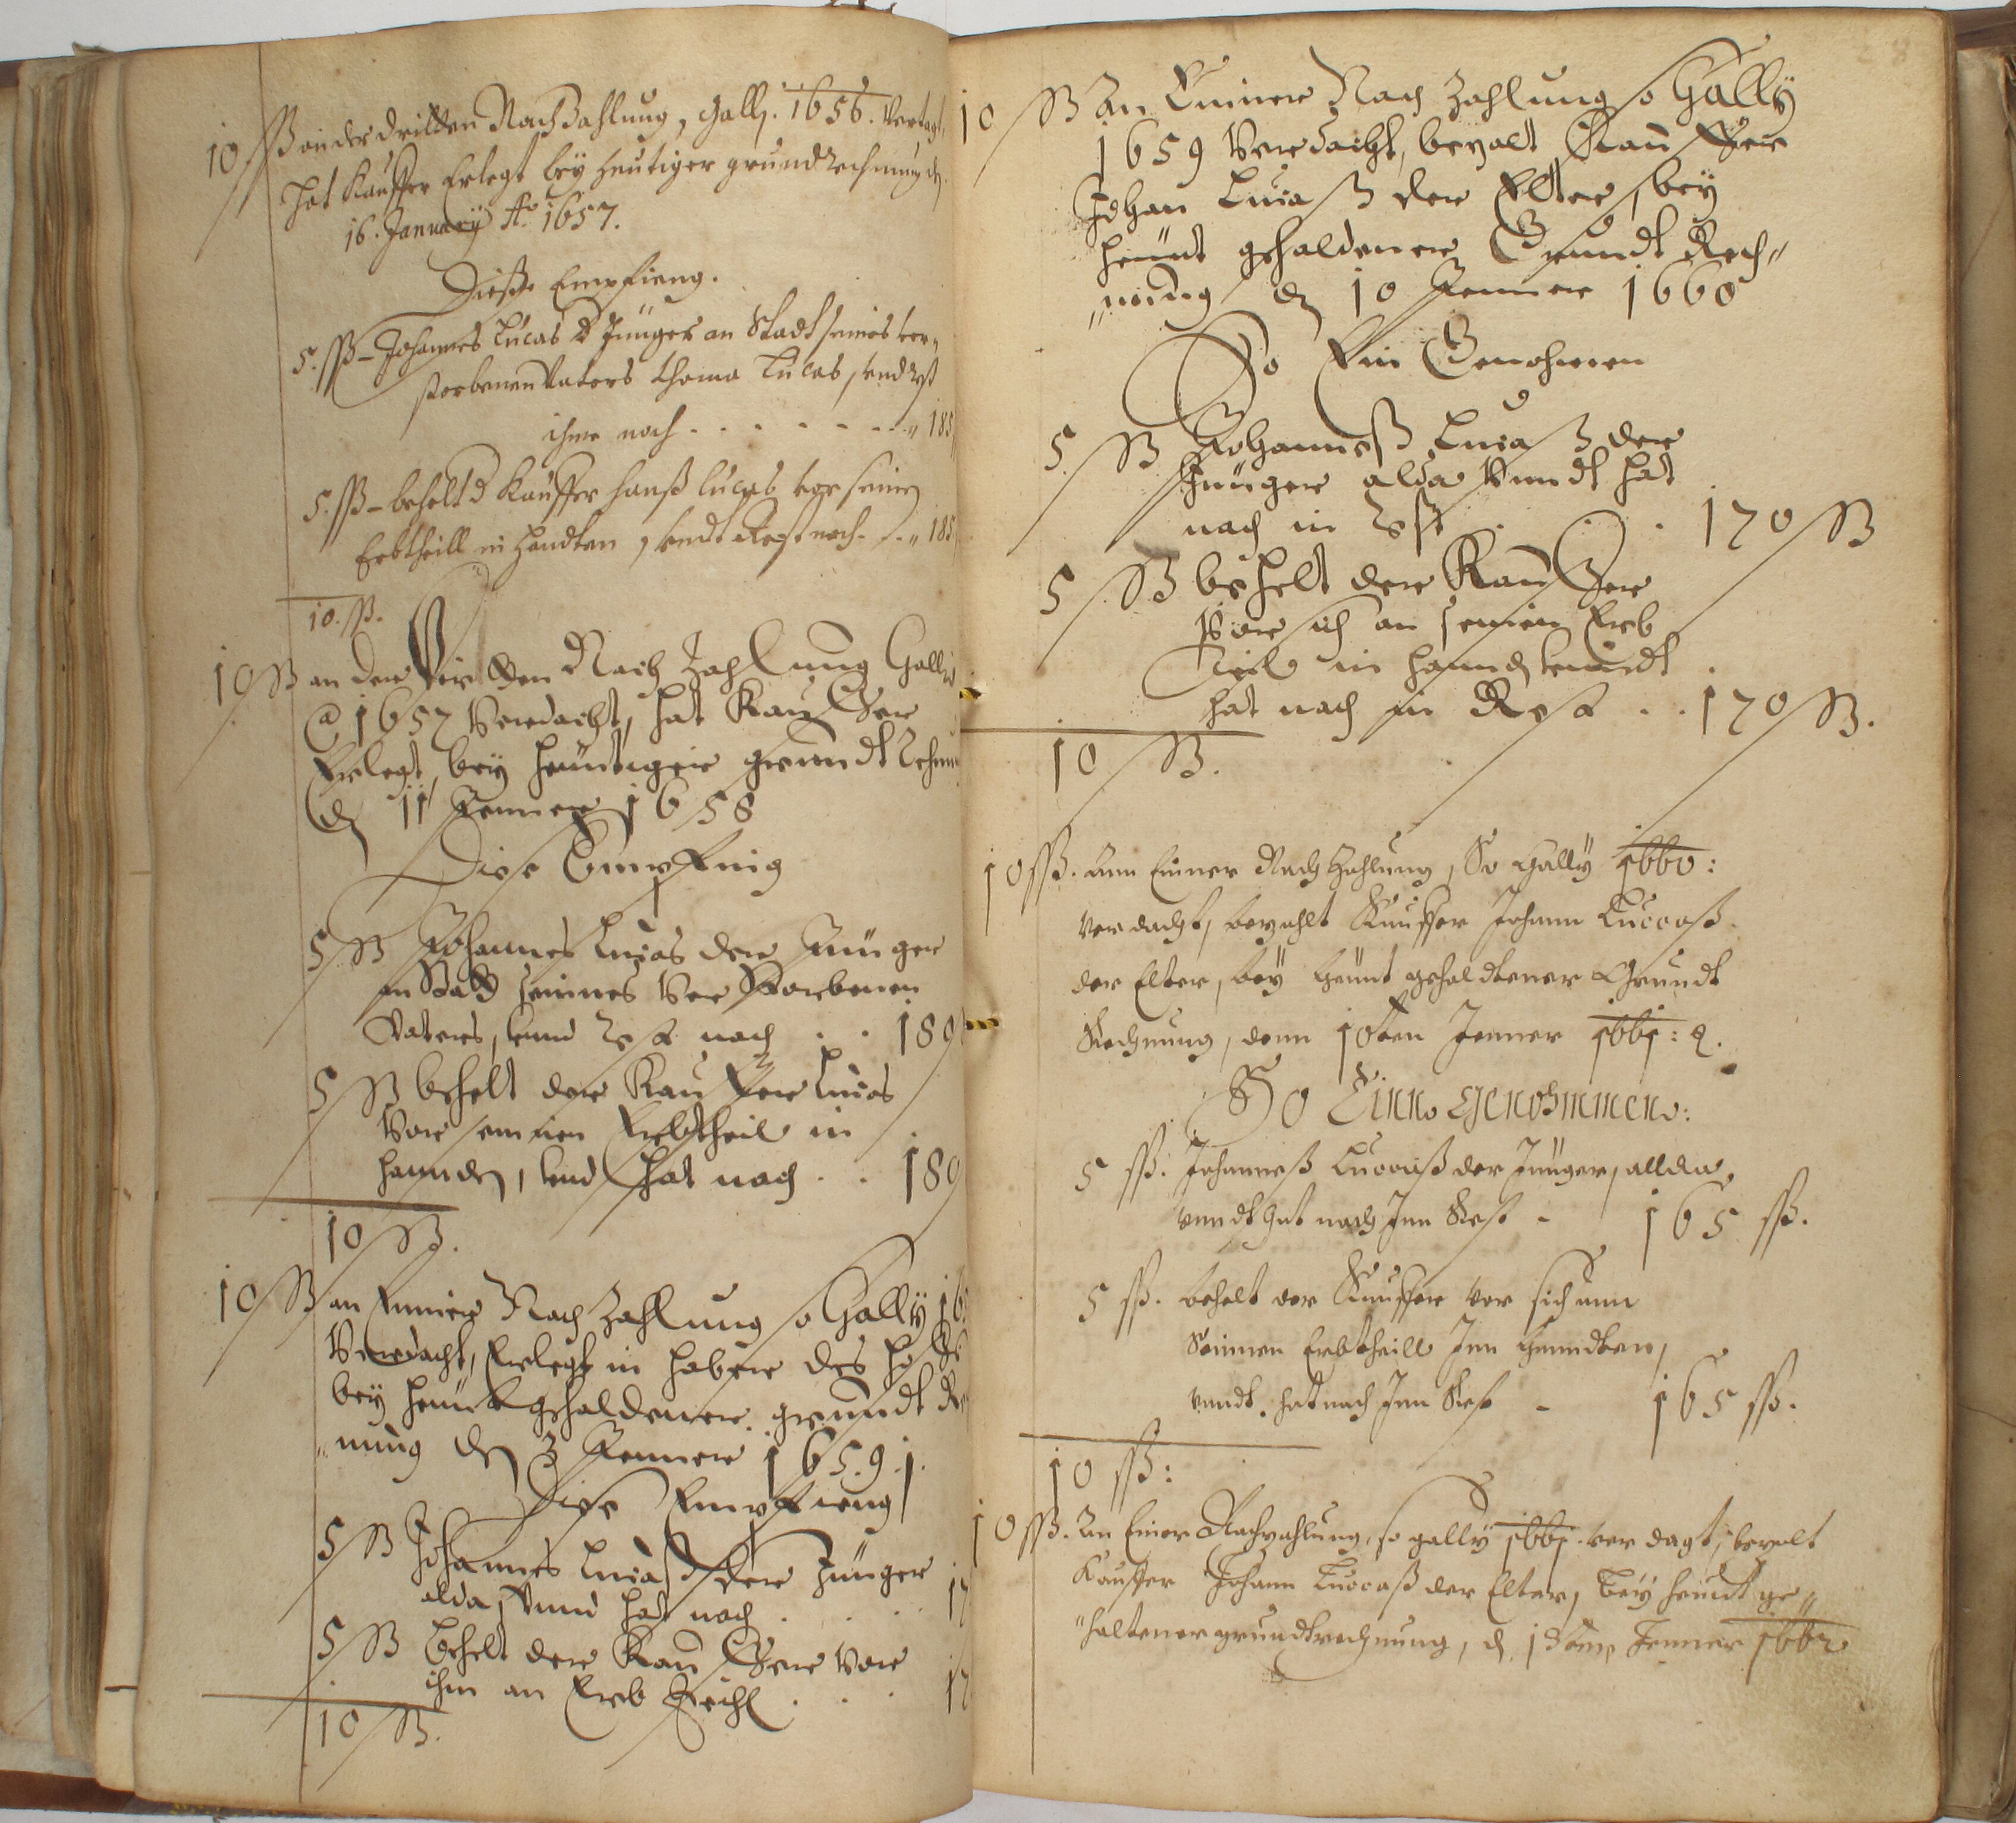 10 ß an der dritten Nach Zahlung, Gally. 1656. Vertagt,
hat Kauffer Erlegt bey heutiger grundrechnung den
16. January Ao 1657.
Dieße Empfieng.
5. ß – Johannes Lucas d Jünger an Stadt seines ver„
storbenen Vaters Thoma Lucas, und rest
ihme noch . . . . . . . „ 185
5. ß – behelt d Kauffer Hanß Lucas vor seinen
Erbtheill in Handten, undt Rest noch . . „ 185
10. ß.
10 ß an der Virdten Nach Zahlung Gally
@ 1657 Verdacht, hat Kauffer
Erlegt, bey heuntiger grundt Rechnu
den 11 Jenner 1658
Diese Empfing
5 ß Johannes Lucas der Jünger
an Stadt seines Verstorbenen
Vaters, unnd Rest noch . . 180
5 ß behelt der Kauffer Lucas
Vor seinnen Erbtheil in
hannden, und hat noch . . 180
10 ß.
10 ß an Einner Nach Zahlung so Gally 165
Verdacht, Erlegt in haber des
bey heundt gehaldener grundt Re
„nung den 3 Jenner 1659
Diese Empfieng
5 ß Johannes Lucaß der Jünger
alda, unnd hat noch . . . 17
5 ß behelt der Kauffer Vor
ihm an Erb Theihl . . . 17
10 ß.
10 ß an Einner Nach Zahlung so Gally
1659 Verdacht, bezalt Kauffer
Johan Lucaß der Elter, bey
heunt gehaldener Grundt Rech„
„nung den 10 Jenner 1660
So Ein Genohmen
5 ß Johanneß Lucaß der
Jünger alda Vundt hat
noch in Rest . . 170 ß
5 ß behelt der Kauffer
Vor sich an seinen Erb
Theil in handen unndt
hat noch in Rest . . 170 ß.
10 ß.
10 ß. Ann Einner Nach Zahlung, So Gally 1660:
Verdacht, bezahlt Kauffer Johann Luccaß
der Elter, bey heunt gehaldtener Grundt
Rechnung, denn 10ten Jenner 1661:
So Einn Genohmmenn:
5 ß. Johanneß Luccaß der Jünger, allda,
unndt hat noch Inn Rest – 165 ß.
5 ß. behelt der Kauffer vor sich ann
Seinnen Erbtheill Inn Handten,
unndt hat noch Inn Rest – 165 ß.
10 ß:
10 ß. An Einer Nachzahlung, so gally 1661. verdagt, bezalt
Kauffer Johann Luccaß der Elter, bey heundt ge„
„haltener grundtrechnung, d. Jenner 1662